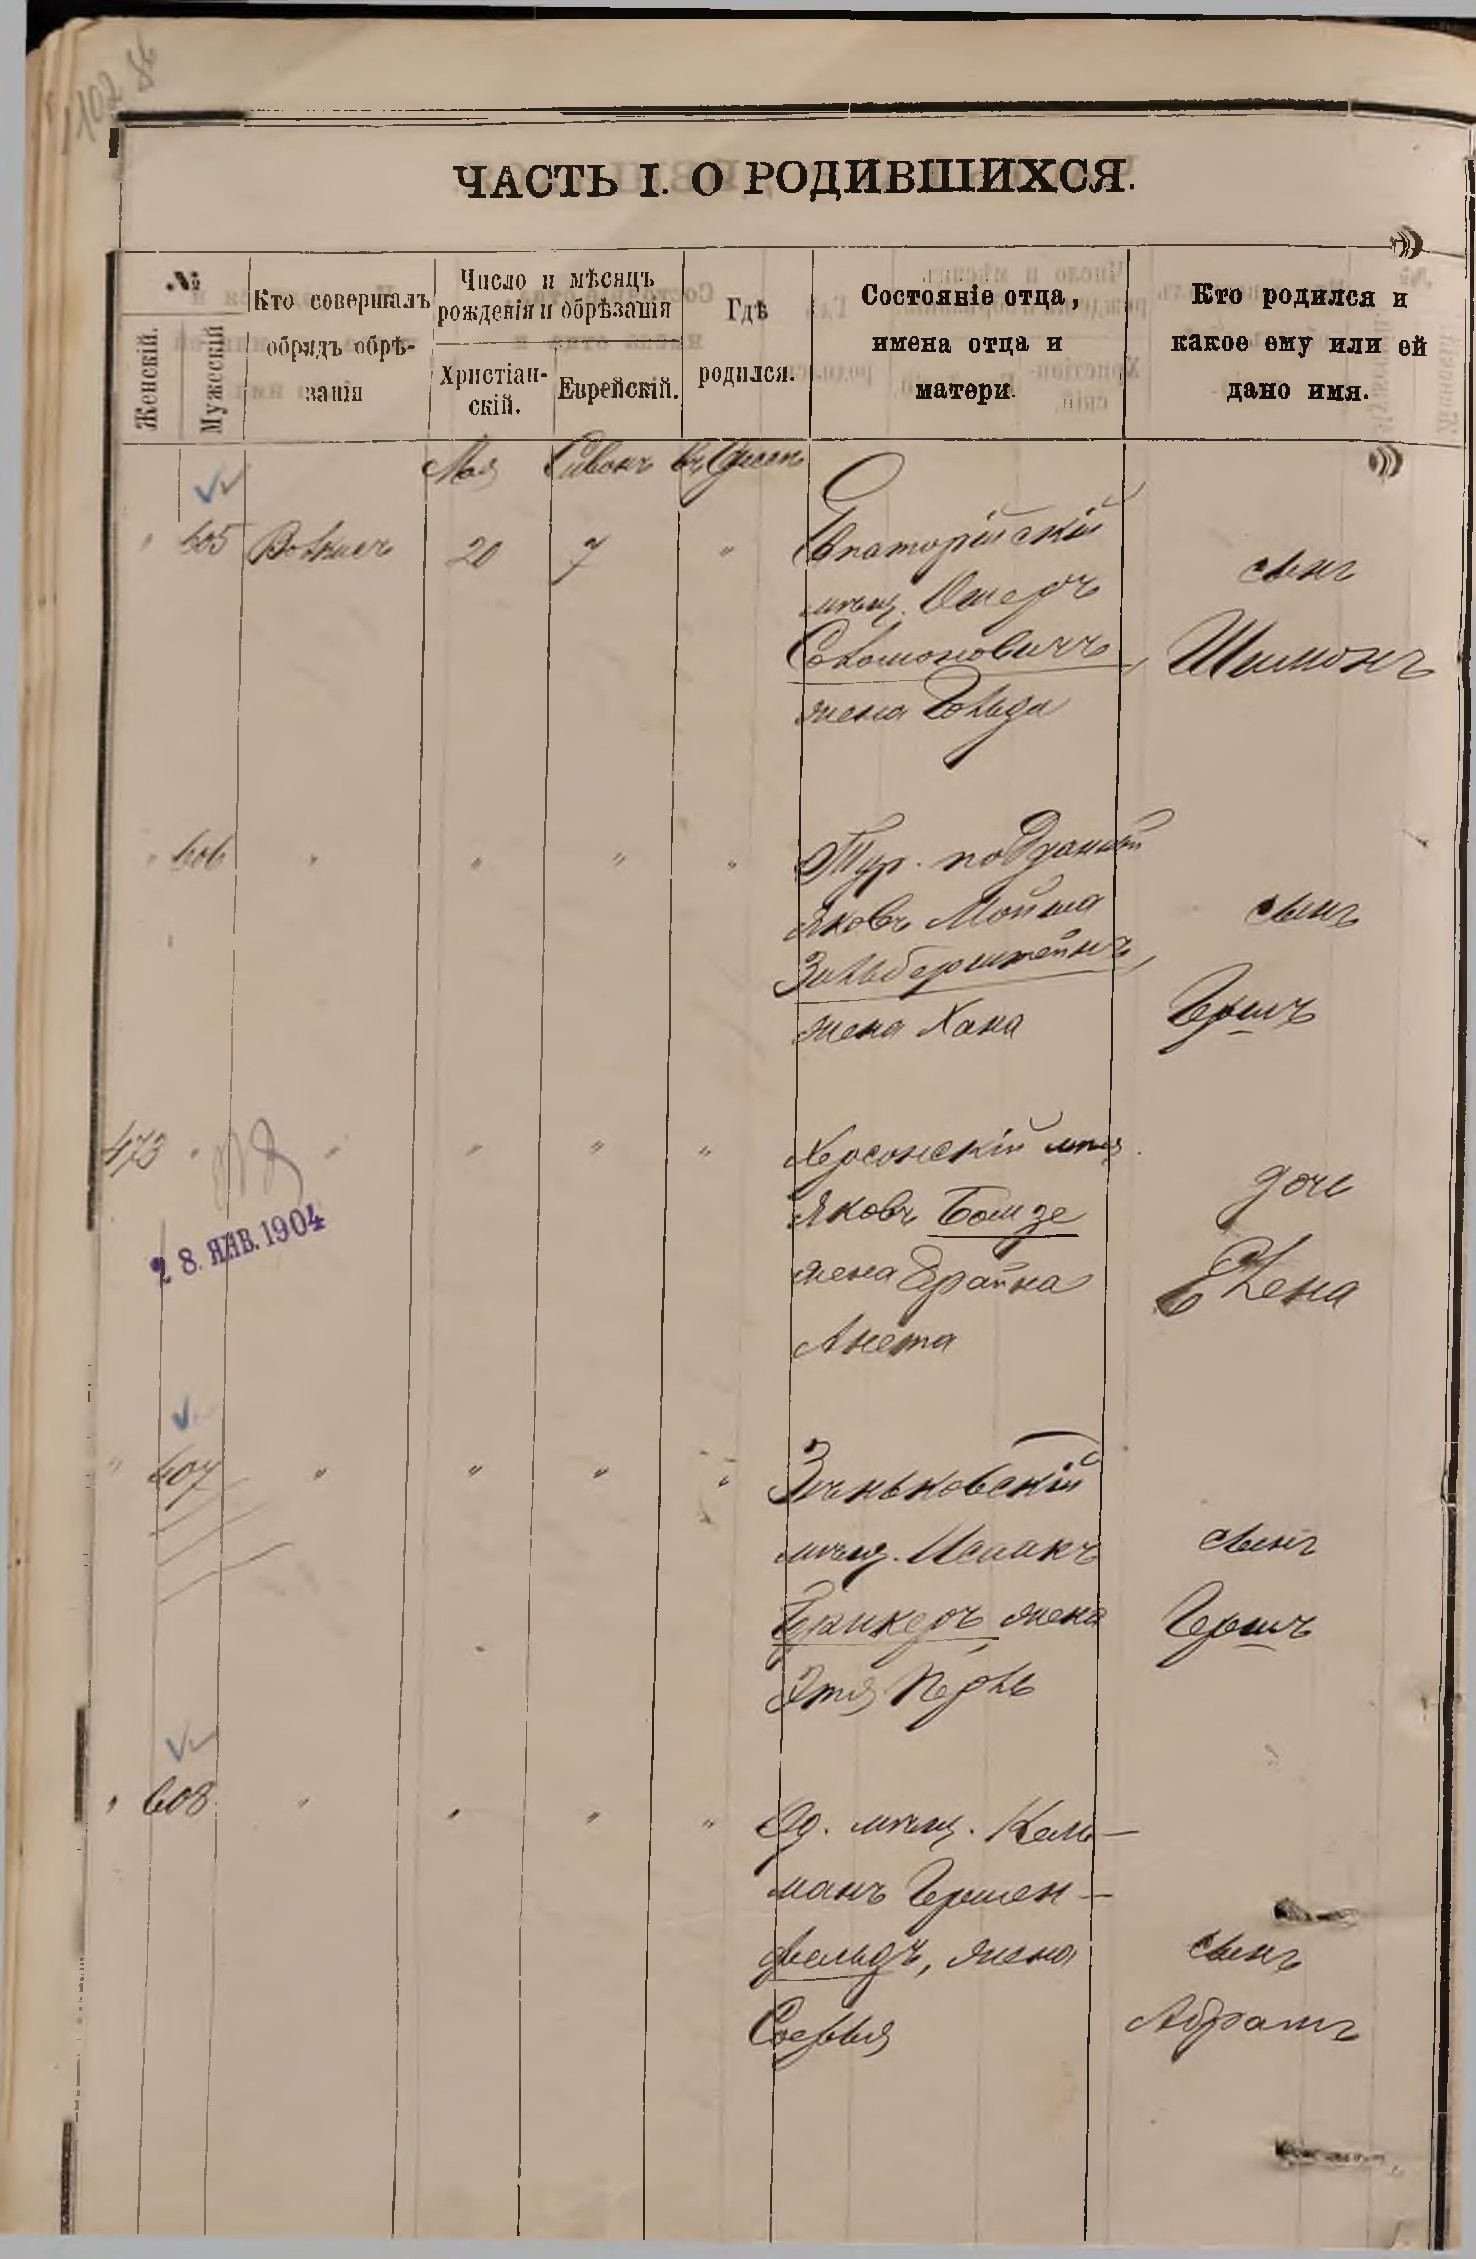 ЧАСТЬ I. О РОДИВШИХСЯ.
№
Женскій.
Мужескій
Кто совершалъ
обрядъ обрѣ-
занія
Число и мѣсяцъ
рожденія и обрѣзанія
Христіан-
скій.
Еврейскій.
Гдѣ
родился.
Состояніе отца,
имена отца и
матери.
Кто родился и
какое ему или ей
дано имя.
Мая Сивонъ въ Одессѣ
" 605 20 7 " Евпаторійскій
мѣщ. Ошеръ
Соломоновичъ,
жена Гольда
сынъ
Шимонъ
" 606 " " " " Тур. подданый
Яковъ Мойша
Зильберштейнъ,
жена Хана
сынъ
Гершъ
473 " " " " " Херсонскій мѣщ.
Яковъ Бомзе
жена Брайна
Анета
дочь
Елена
28. ЯНВ. 1904
" 607 " " " " Зѣньковскій
мѣщ. Исаакъ
жена
Этя Перль
сынъ
Гершъ
" 608 " " " " Од. мѣщ. Каль-
манъ Гершен-
фельдъ, жена
Софья
сынъ
Абрамъ